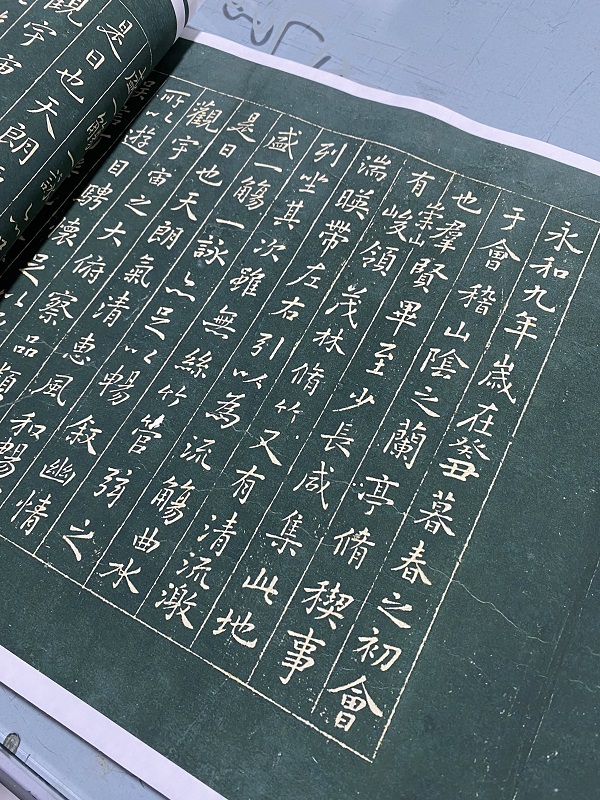 永和九年歲在癸丑暮春之初會
于會稽山陰之蘭亭脩稧事
也羣賢畢至少長咸集此地
有崇山峻領茂林脩竹又有清流激
湍暎帶左右引以為流觴曲水
列坐其次雖無絲竹管弦之
盛一觴一詠亦足以暢敘幽情
是日也天朗氣清惠風和暢
觀宇宙之大俯察品類
所以遊目騁懷足以
是日也天朗
觀宇宙